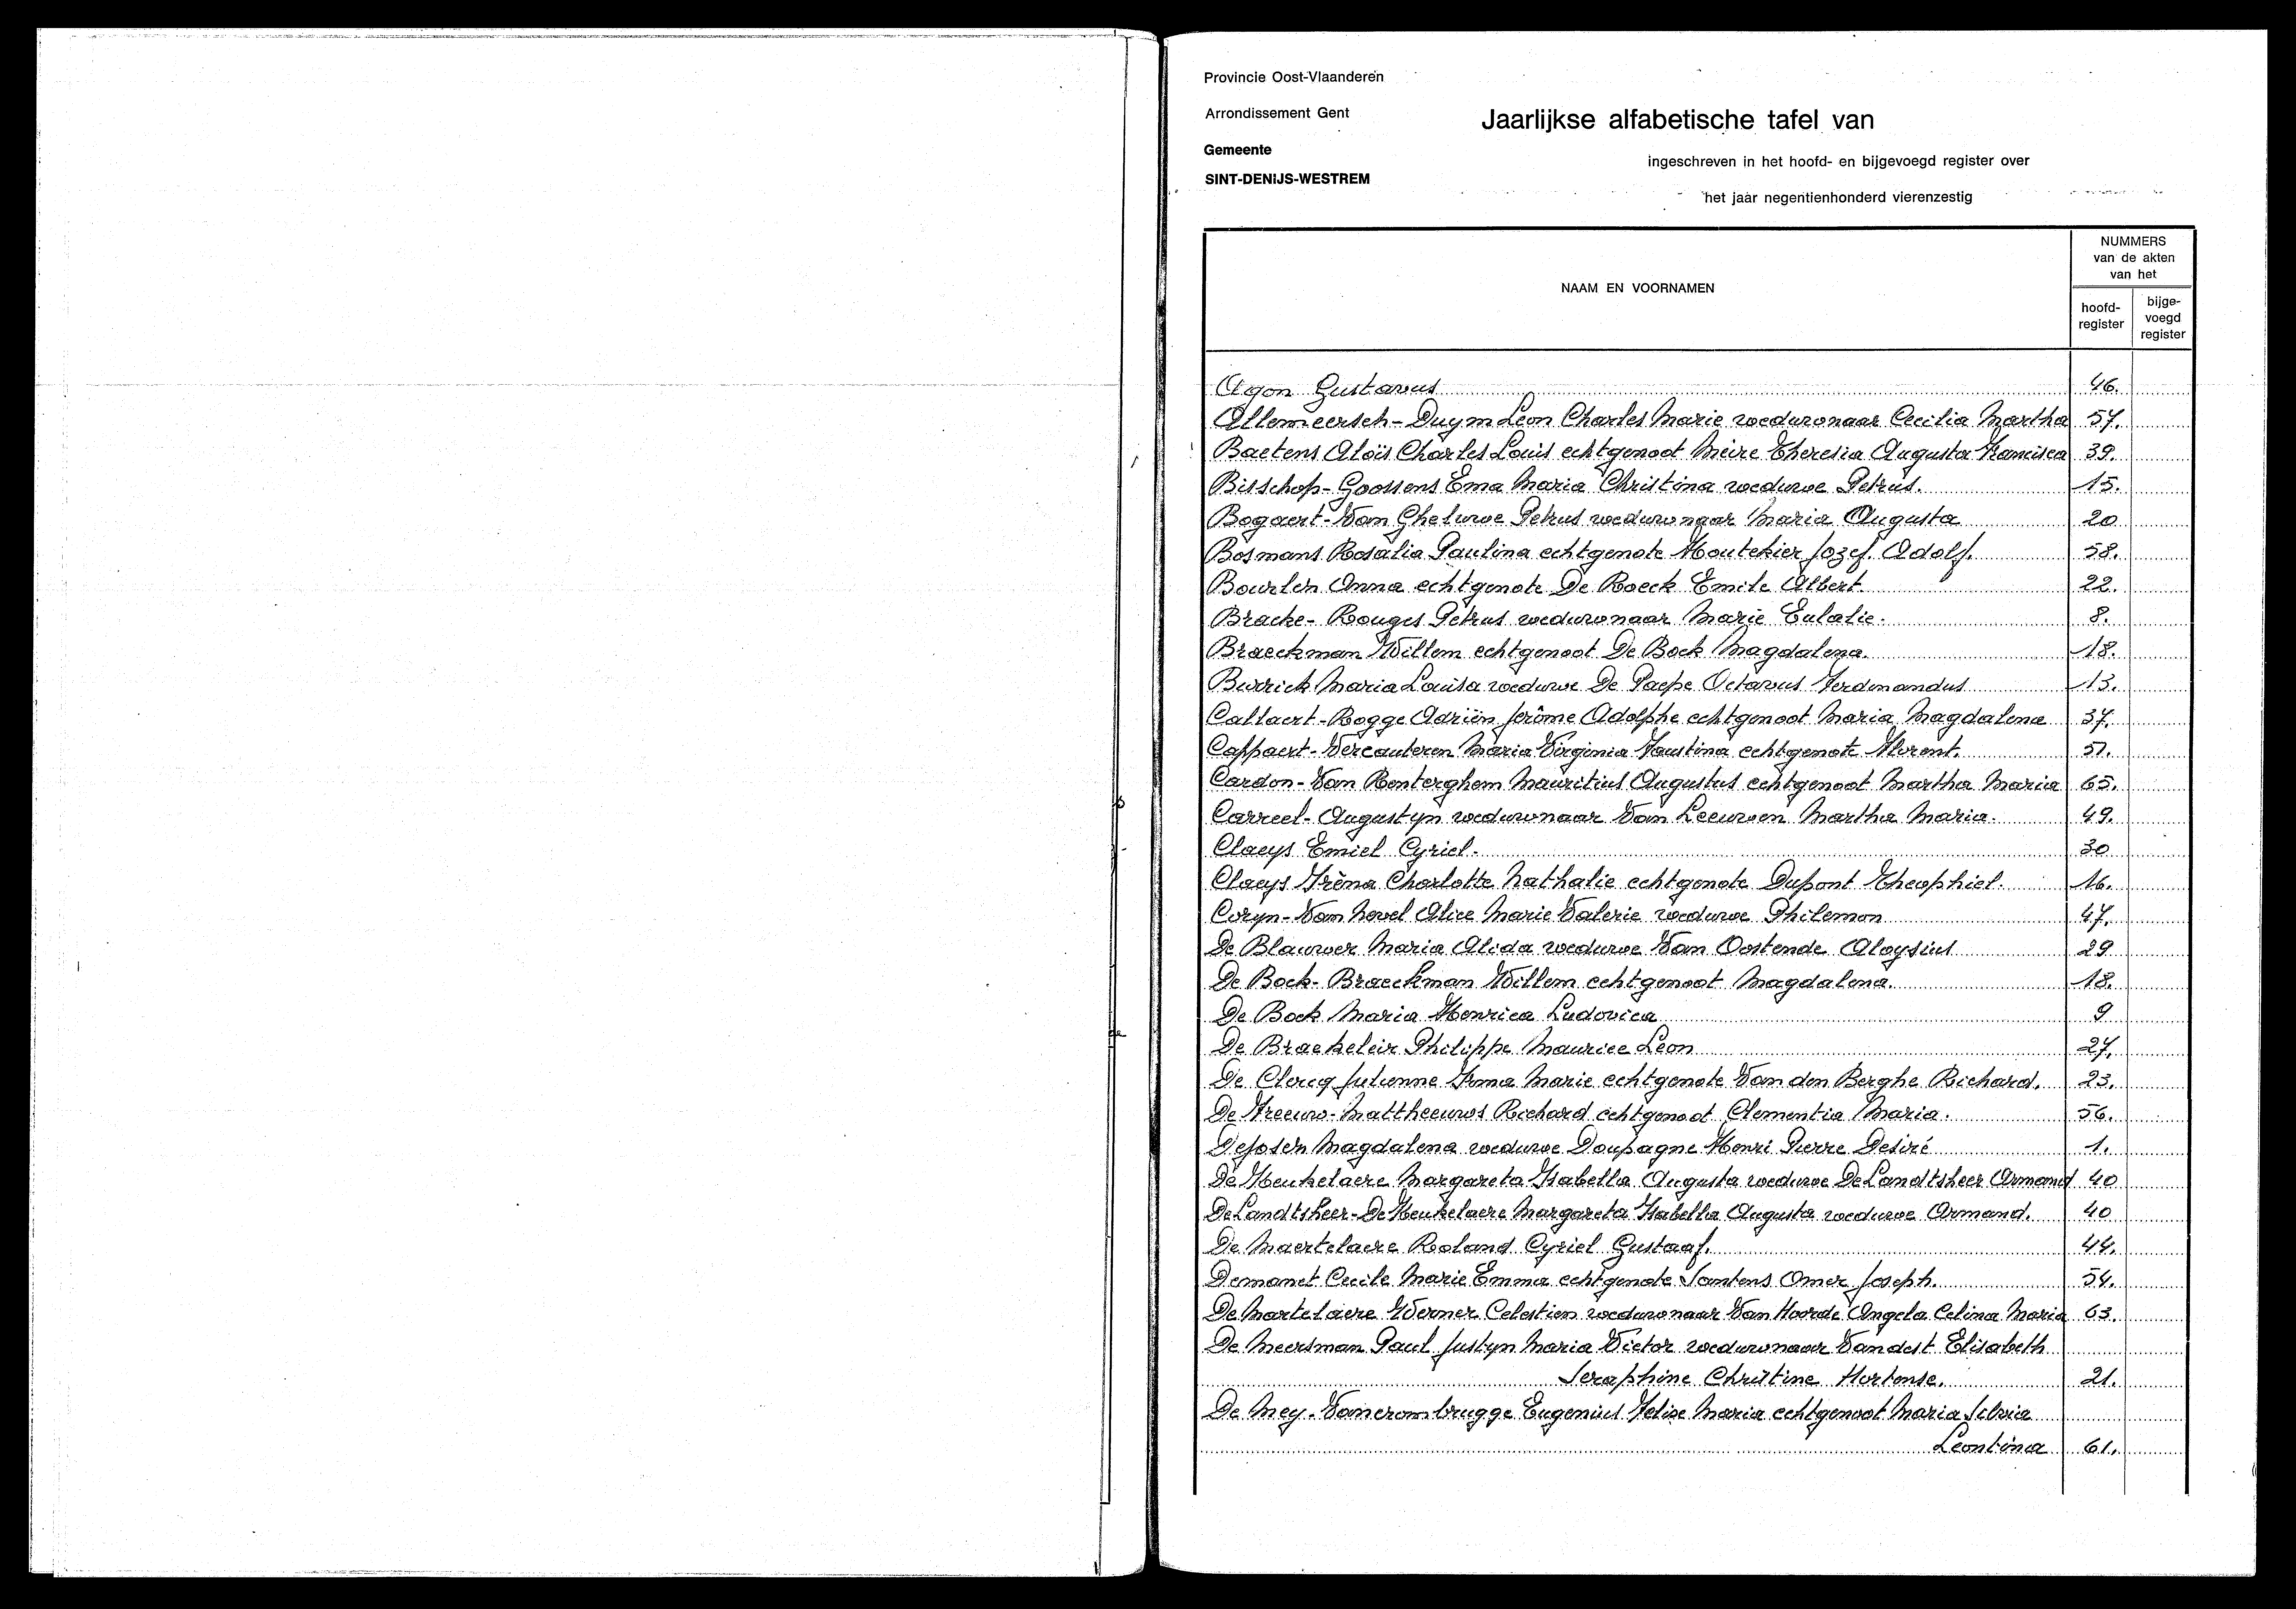 Provincie Oost-Vlaanderen
Arrondissement Gent
Gemeente
SINT-DENIJS-WESTREM
Jaarlijkse alfabetische tafel van
ingeschreven in het hoofd- en bijgevoegd register over
het jaar negentienhonderd vierenzestig
NAAM EN VOORNAMEN
NUMMERS
van de akten
van het
hoofd-
register
bijge-
voegd
register
Agon Gustavus 46.
Allemeersch-Duym Leon Charles Marie weduwnaar Cecilia Martha 57.
Baetens Aloïs Charles Louis echtgenoot Meire Theresia Augusta Francisca 39.
Bisschop-Goossens Ema Maria Christina weduwe Petrus. 15.
Bogaert-Van Gheluwe Petrus weduwnaar Maria Augusta 20
Bosmans Rosalia Paulina echtgenote Houtekier Jozef Adolf. 58.
Bourlen Anna echtgenote De Roeck Emile Albert. 22.
Bracke-Rouges Petrus weduwnaar Marie Eulalie. 8.
Braeckman Willem echtgenoot De Bock Magdalena. 18.
Burrick Maria Louisa weduwe De Paepe Octavus Ferdinandus 13.
Callaert-Rogge Adriën Jerôme Adolphe echtgenoot Maria Magdalena 37.
Cappaert-Vercauteren Maria Virginia Faustina echtgenote Florent. 51.
Cardon-Van Renterghem Mauritius Augustus echtgenoot Martha Maria 65.
Carreel-Augustyn weduwnaar Van Leeuwen Martha Maria. 49.
Claeys Emiel Cyriel. 30
Claeys Irèna Charlotte Nathalie echtgenote Dupont Theophiel. 16.
Coryn-Van Hovel Alice Marie Valerie weduwe Philemon 47.
De Blauwer Maria Alida weduwe Van Oostende Aloysius 29
De Bock-Braeckman Willem echtgenoot Magdalena. 18.
De Bock Maria Henrica Ludovica 9
De Braekeleir Philippe Maurice Leon 27.
De Clercq Julienne Irma Marie echtgenote Van den Berghe Richard. 23.
De Freeuw-Mattheeuws Richard echtgenoot Clementia Maria. 56.
Dejosen Magdalena weduwe Doupagne Henri Pierre Desiré 1.
De Keukelaere Margareta Isabella Augusta weduwe De Landtsheer Armand 40
De Landtsheer-De Keukelaere Margareta Isabella Augusta weduwe Armand. 40
De Maertelaere Roland Cyriel Gustaaf. 44.
Demanet Cecile Marie Emma echtgenote Santens Omer Joseph. 54.
De Martelaere Werner Celestien weduwnaar Van Hoorde Angela Celina Maria 63.
De Meersman Paul Justyn Maria Victor weduwnaar Vandest Elisabeth
Seraphine Christine Hortense. 21.
De Mey-Vancrombrugge Eugenius Felix Maria echtgenoot Maria Silvia
Leontina 61.